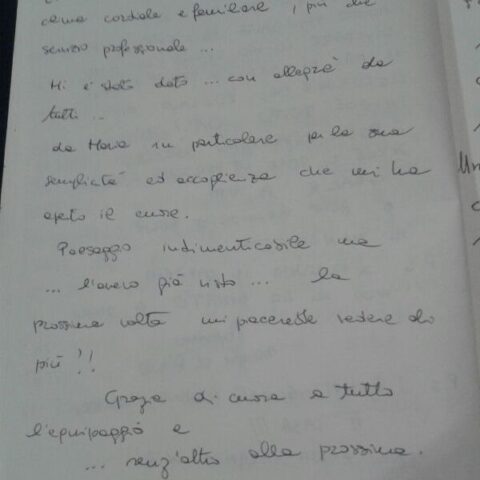 clima cordiale e familiare, più che
servizio professionale ...
Mi è stato dato ... con allegria da
tutti ..
da Maria in particolare per la sua
semplicità ed accoglienza che mi ha
aperto il cuore.
Paesaggio indimenticabile ma
... l'avevo già visto ... la
prossima volta mi piacerebbe vedere di
più!!
Grazie di cuore a tutto
l'equipaggio e
... senz'altro alla prossima.